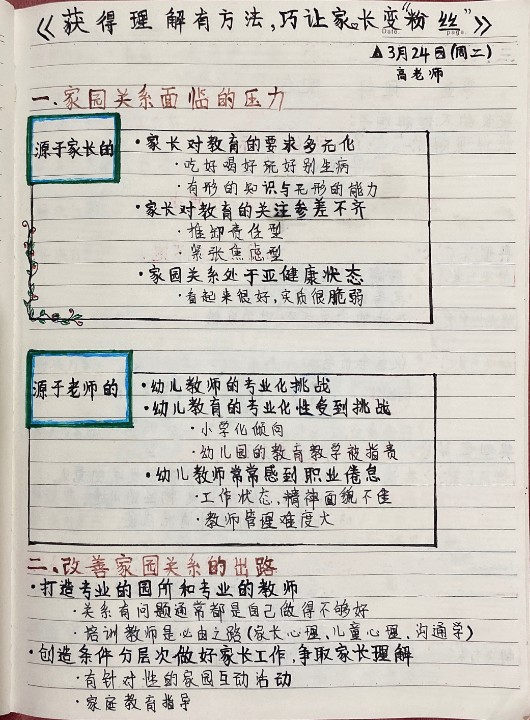 《获得理解有方法,巧让家长变“粉丝”》
Date. page.
▲3月24日(周二)
高老师
一.家园关系面临的压力
源于家长的
·家长对教育的要求多元化
·吃好喝好玩好别生病
·有形的知识与无形的能力
·家长对教育的关注参差不齐
·推卸责任型
·紧张焦虑型
·家园关系处于亚健康状态
·看起来很好,实质很脆弱
源于老师的
·幼儿教师的专业化挑战
·幼儿教育的专业化性受到挑战
·小学化倾向
·幼儿园的教育教学被指责
·幼儿教师常常感到职业倦怠
·工作状态,精神面貌不佳
·教师管理难度大
二.改善家园关系的出路
·打造专业的园所和专业的教师
·关系有问题通常都是自己做得不够好
·培训教师是必由之路(家长心理,儿童心理,沟通学)
·创造条件分层次做好家长工作,争取家长理解
·有针对性的家园互动活动
·家庭教育指导